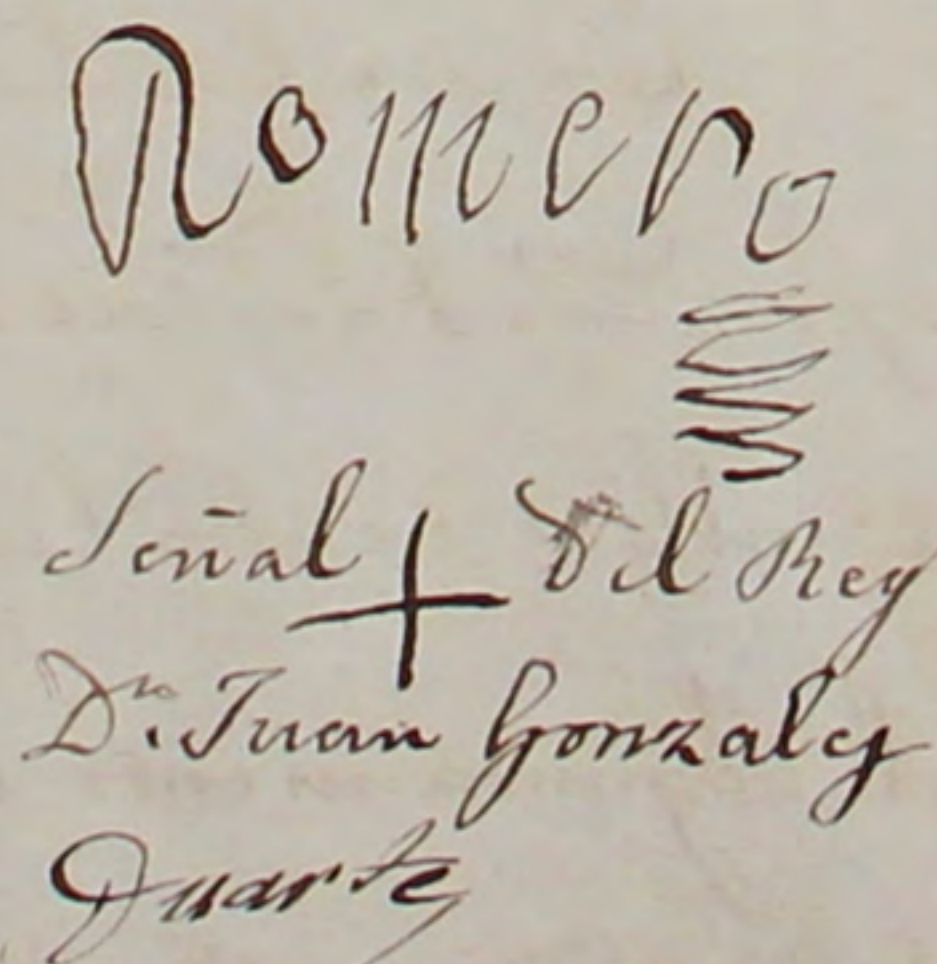 Romero
Señal + del Rey
Dn. Juan Gonzalez
Duarte